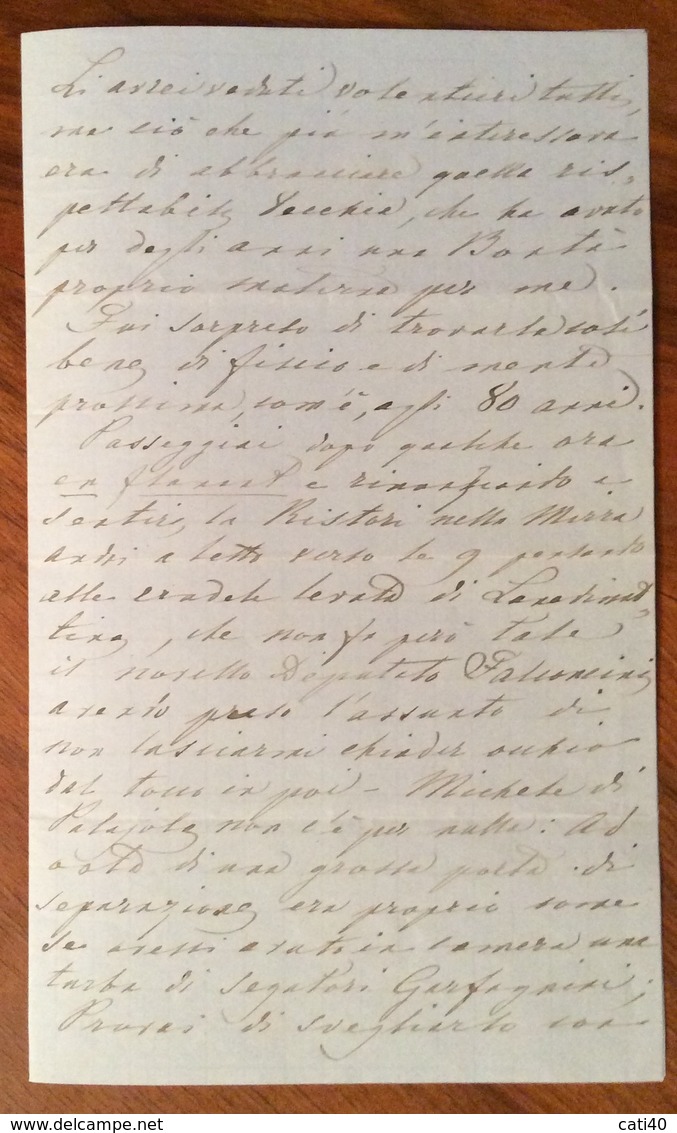 Li avrei veduti volentieri tutti,
ma ciò che più m'interessava
era di abbracciare quella ris-
pettabile Vecchia, che ha avuto
per degli anni una Bontà
proprio materna per me.
Fui sorpreso di trovarla così
bene di fisico e di mente
prossima, com'è, agli 80 anni.
Passeggiai dopo qualche ora
en flanant e rinunziando a
sentire la Ristori nella Mirra
andai a letto verso le 9 pensando
alla crudele levata di
, che non fu però tale
il novello Deputato Falconcini
avendo preso l'assunto di
non lasciarmi chiuder occhio
dal tocco in poi - Michele di
non c'è per nulla: Ad
onta di una grossa porta di
separazione era proprio come
se avessi avuto in camera una
turba di segatori Garfagnini;
Provai di svegliarlo con
www.delcampe.net
cati40